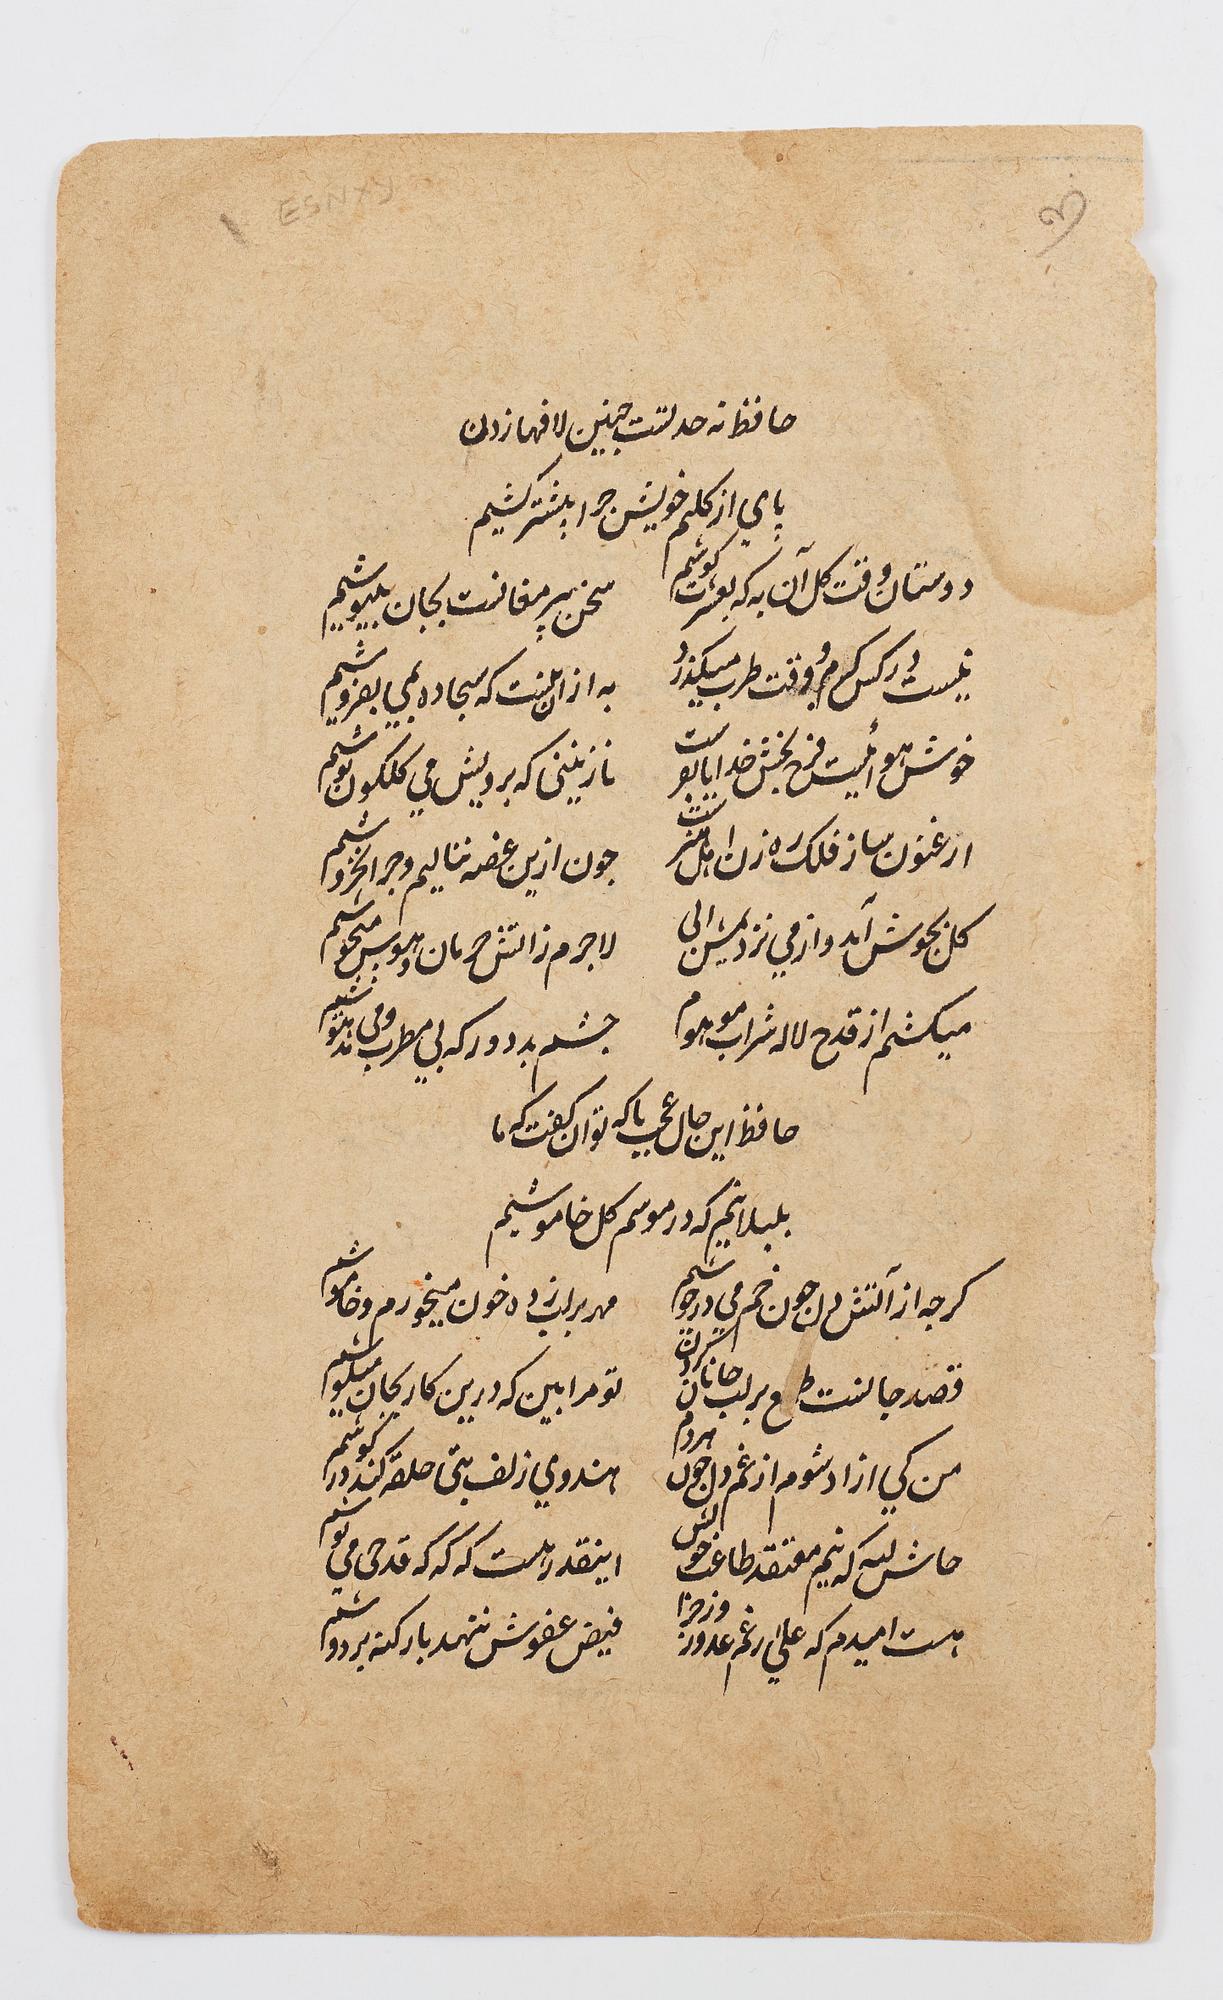 ESNXY
حافظ نه حد تست چنین لافها زدن
پای از کلیم خویش چرا پیشتر کشیم
دوستان وقت کل آن به که بعشرت کوشیم سخن پیر مغانست بجان بنیوشیم
نیست در کس کرم و وقت طرب میکذرد به از ان نیست که سجاده بمی بفروشیم
خوش هوائیست فرح بخش خدایا بفرست نازنینی که برویش می کلکون نوشیم
ارغنون ساز فلک ره زن اهل هنرست چون ازین غصه ننالیم و چرا نخروشیم
کل بجوش آمد و از می نزدیمش ابی لاجرم ز اتش حرمان و هوس میجوشیم
میکشیم از قدح لاله شراب موهوم چشم بد دور که بی مطرب و می مدهوشیم
حافظ این حال عجب با که توان کفت که ما
بلبلانیم که در موسم کل خاموشیم
کرچه از آتش دل چون خم می در جوشم مهر بر لب زده خون میخورم و خاموشم
قصد جانست طمع بر لب جانان کردن تو مرا بین که درین کار بجان میکوشم
من کی ازاد شوم از غم دل چون هردم هندوی زلف بتی حلقه کند در کوشم
حاش لله که نیم معتقد طاعت خویش اینقدر هست که که که قدحی می نوشم
هست امیدم که علی رغم عدو روز جزا فیض عفوش ننهد بار کنه بر دوشم